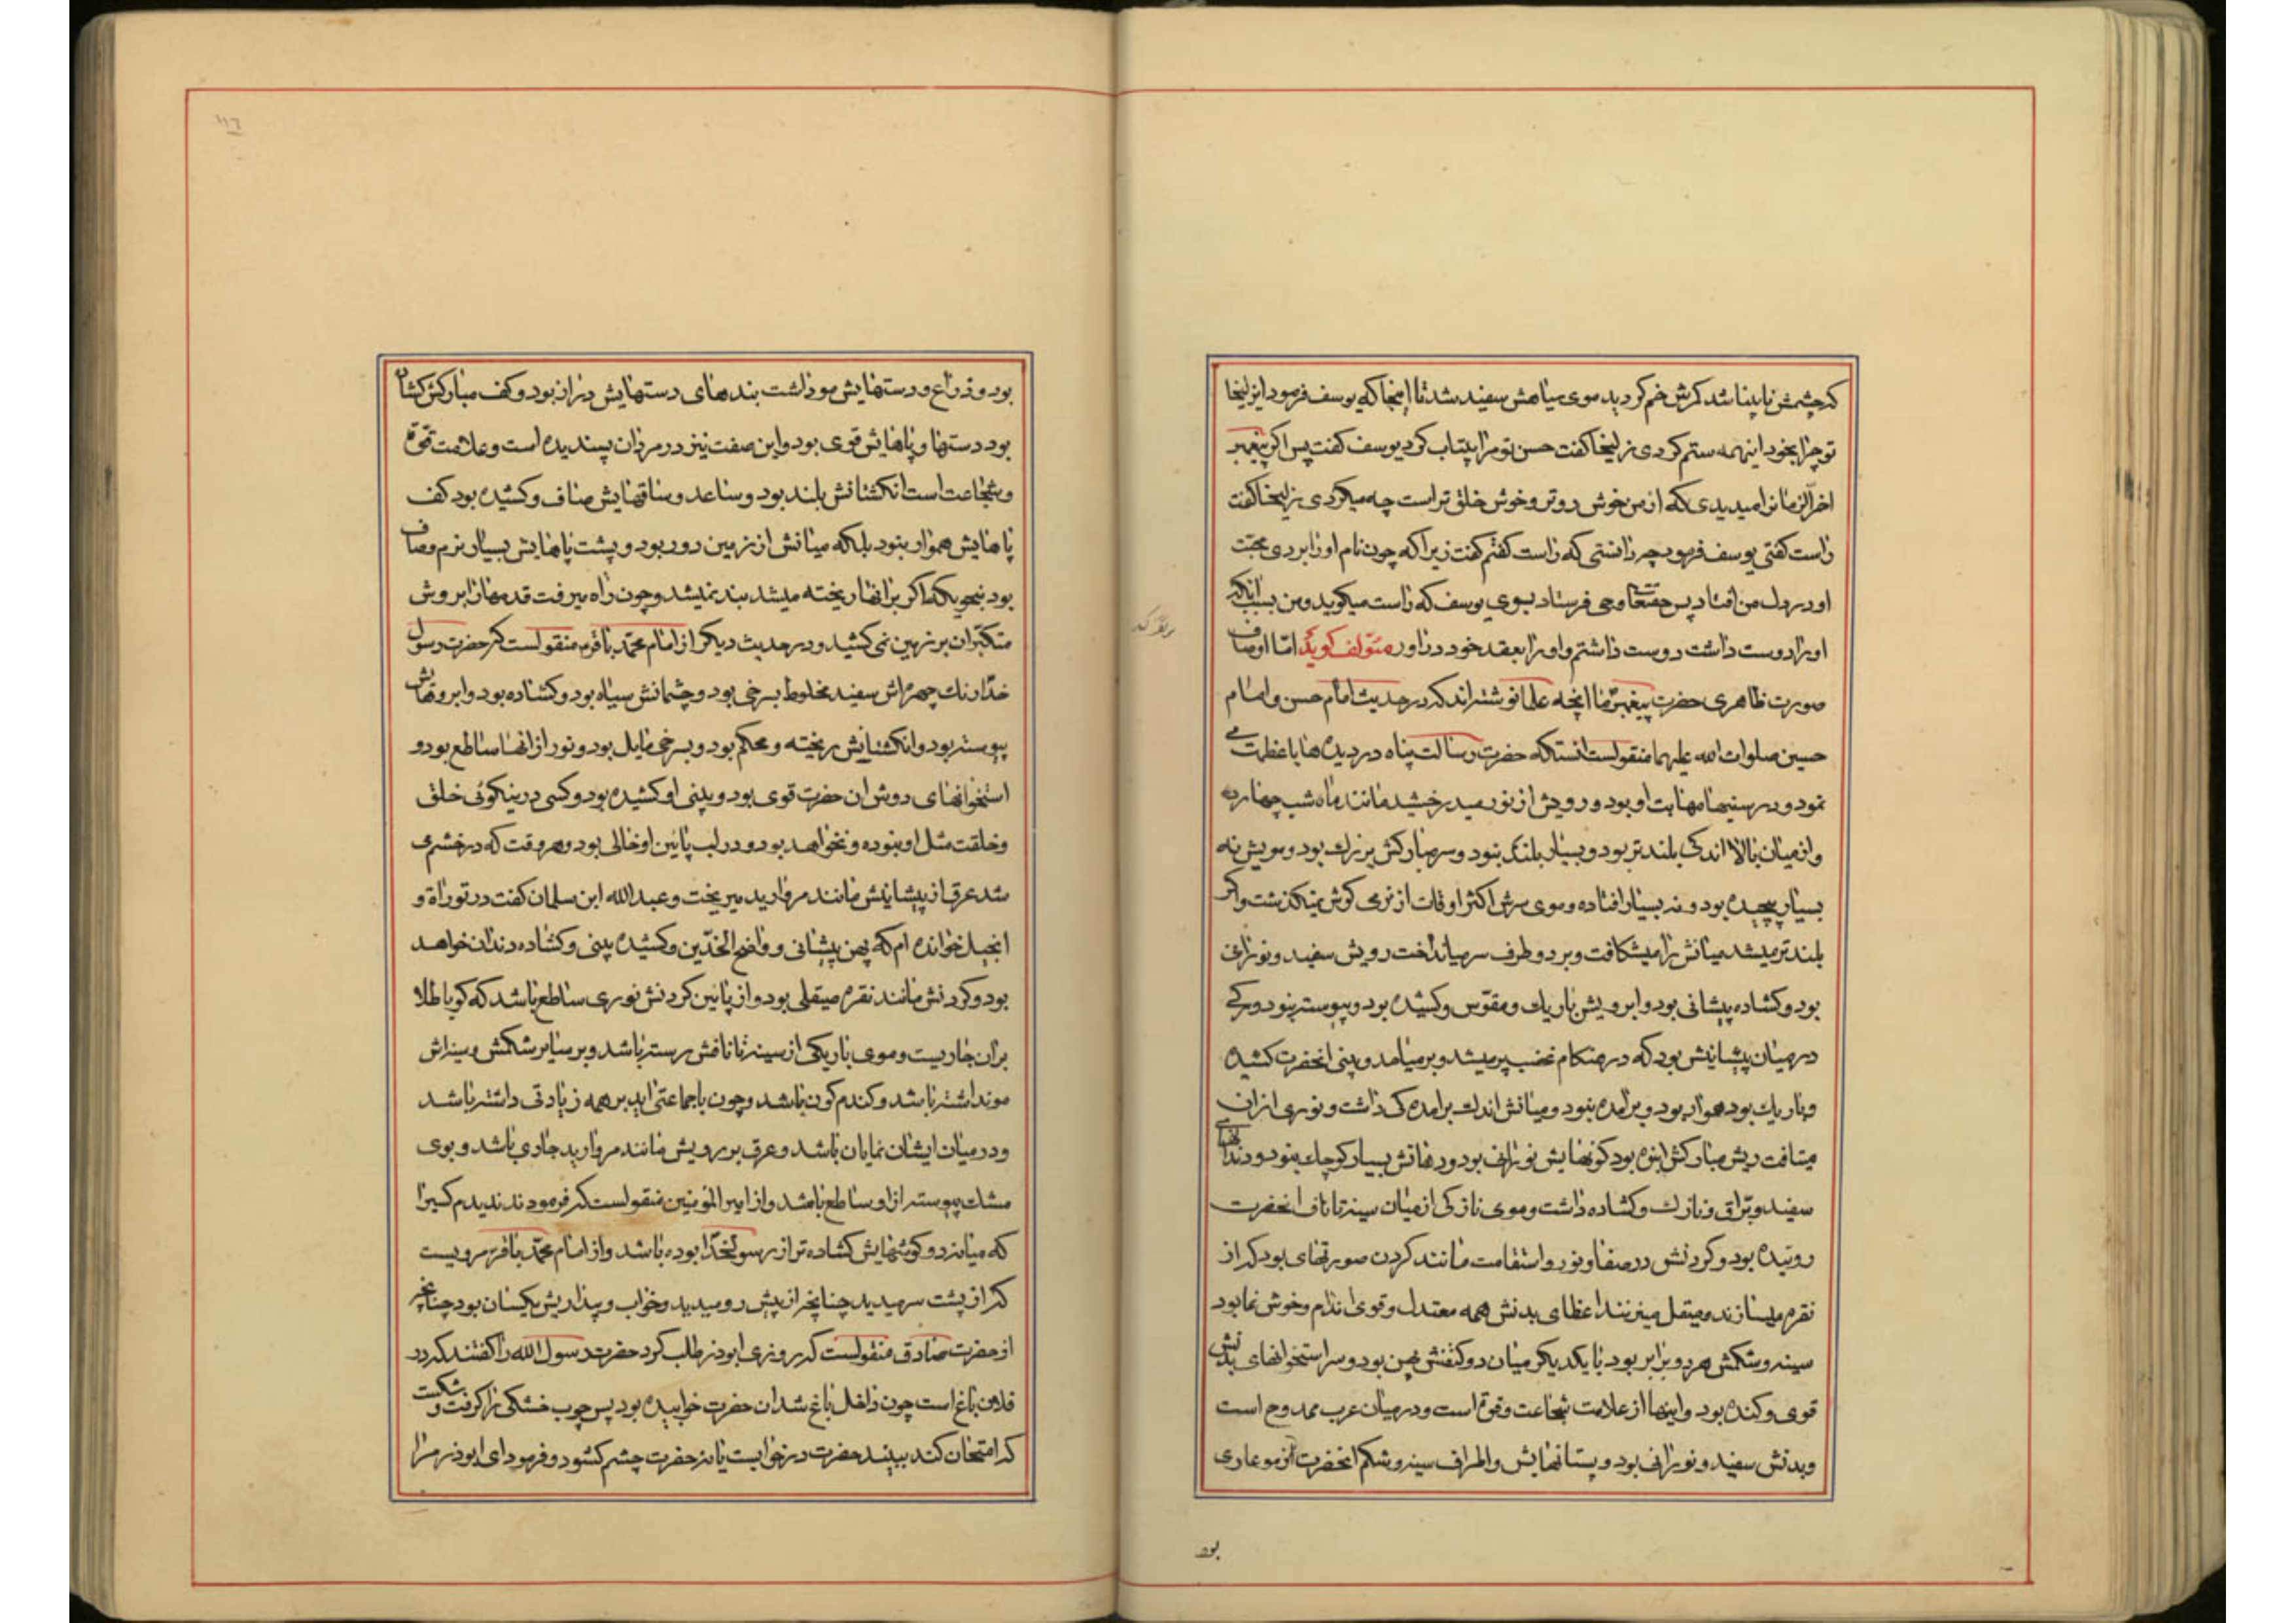 که چشمش نابینا شد کمرش خم کردید موی سیاهش سفید شد تا اینجا که یوسف فرمود ای زلیخا
تو چرا بخود اینهمه ستم کردی زلیخا کفت حسن تو مرا بیتاب کرد یوسف کفت پس اکر پیغمبر
اخرالزمانرا میدیدی که از من خوش روتر و خوش خلق تر است چه میکردی زلیخا کفت
راست کفتی یوسف فرمود چه دانستی که راست کفتم کفت زیرا که چون نام او را بردی محبت
او در دل من افتاد پس حقتعا وحی فرستاد بسوی یوسف که راست میکوید و من بسبب انکه
او را دوست داشت دوست داشتم و او را بعقد خود دراور مؤلف کوید اما اوصاف
صورت ظاهری حضرت پیغمبر ما انچه علما نوشته اند که در حدیث امام حسن و امام
حسین صلوات الله علیهما منقولست انستکه حضرت رسالت پناه در دیده ها با عظمت می
نمود و در سینها مهابت او بود و رویش از نور میدرخشید مانند ماه شب چهارده
و از میان بالا اندکی بلندتر بود و بسیار بلند نبود و سر مبارکش بزرک بود و مویش نه
بسیار پیچیده بود و نه بسیار افتاده و موی سرش اکثر اوقات از نرمی کوش نمیکذشت و اکر
بلندتر میشد میانش را میشکافت و بر دو طرف سر میانداخت رویش سفید و نورانی
بود و کشاده پیشانی بود و ابرویش باریک و مقوس و کشیده بود و پیوسته نبود و رکی
در میان پیشانیش بود که در هنکام غضب پر میشد و بر میامد و بینی انحضرت کشیده
و باریک بود هموار بود و برآمده نبود و میانش اندک برامدکی داشت و نوری از ان
میتافت ریش مبارکش انبوه بود کونهایش نورانی بود و دهانش بسیار کوچک نبود و دندانهایش
سفید و براق و نازک و کشاده داشت و موی نازکی از میان سینه تا ناف انحضرت
روئیده بود و کردنش در صفا و نور و استقامت مانند کردن صورتهای بود که از
نقره میسازند و صیقل میزنند اعظای بدنش همه معتدل و قوی اندام و خوش نما بود
سینه و شکمش هر دو برابر بود با یکدیکر میان دو کتفش پهن بود و سر استخوانهای بدنش
قوی و کنده بود و اینها از علامت شجاعت و قوة است و در میان عرب ممدوح است
و بدنش سفید و نورانی بود و پستانهایش و اطراف سینه و شکم انحضرت از مو عاری
بود
١١٦
بود و ذراع و دستهایش مو داشت بندهای دستهایش دراز بود و کف مبارکش کشاده
بود دستها و پاهایش قوی بود و این صفت نیز در مردان پسندیده است و علامت قوة
و شجاعت است انکشتانش بلند بود و ساعد و ساقهایش صاف و کشیده بود کف
پاهایش هموار نبود بلکه میانش از زمین دور بود و پشت پاهایش بسیار نرم و صاف
بود بنحویکه اکر بر انها ریخته میشد بند نمیشد و چون راه میرفت قدمها را بروش
متکبران بر زمین نمی کشید و در حدیث دیکر از امام محمد باقر منقولست که حضرت رسول
خدا رنک چهره اش سفید مخلوط بسرخی بود و چشمانش سیاه بود و کشاده بود و ابروهایش
پیوسته بود و انکشتایش ریخته و محکم بود و بسرخی مایل بود و نور از انها ساطع بود و
استخوانهای دوش ان حضرت قوی بود و بینی او کشیده بود و کسی در نیکوئی خلق
و خلقت مثل او نبوده و نخواهد بود و در لب پائین او خالی بود و هر وقت که در خشم می
شد عرق از پیشانیش مانند مروارید میریخت و عبدالله ابن سلمان کفت در توراة و
انجیل خوانده ام که پهن پیشانی و واضح الخدین و کشیده بینی و کشاده دندان خواهد
بود و کردنش مانند نقره صیقلی بود و از پائین کردنش نوری ساطع باشد که کویا طلا
بران جاریست و موی باریکی از سینه تا نافش رسته باشد و بر سایر شکمش و سینه اش
مو نداشته باشد و کندم کون باشد و چون با جماعتی اید بر همه زیادتی داشته باشد
و در میان ایشان نمایان باشد و عرق بر رویش مانند مروارید جاری باشد و بوی
مشک پیوسته از او ساطع باشد و از امیر المؤمنین منقولست که فرمودند ندیدم کسیرا
که میانه دو کوشهایش کشاده تر از رسولخدا بوده باشد و از امام محمد باقر مرویست
که از پشت سر میدید چنانچه از پیش رو میدید و خواب و بیداریش یکسان بود چنانچه
از حضرت صادق منقولست که روزی ابوذر طلب کرد حضرت رسول الله را کفتند که در
فلان باغ است چون داخل باغ شد ان حضرت خوابیده بود پس چوب خشکی را کرفت و شکست
که امتحان کند ببیند حضرت در خوابست یا نه حضرت چشم کشود و فرمود ای ابوذر مرا